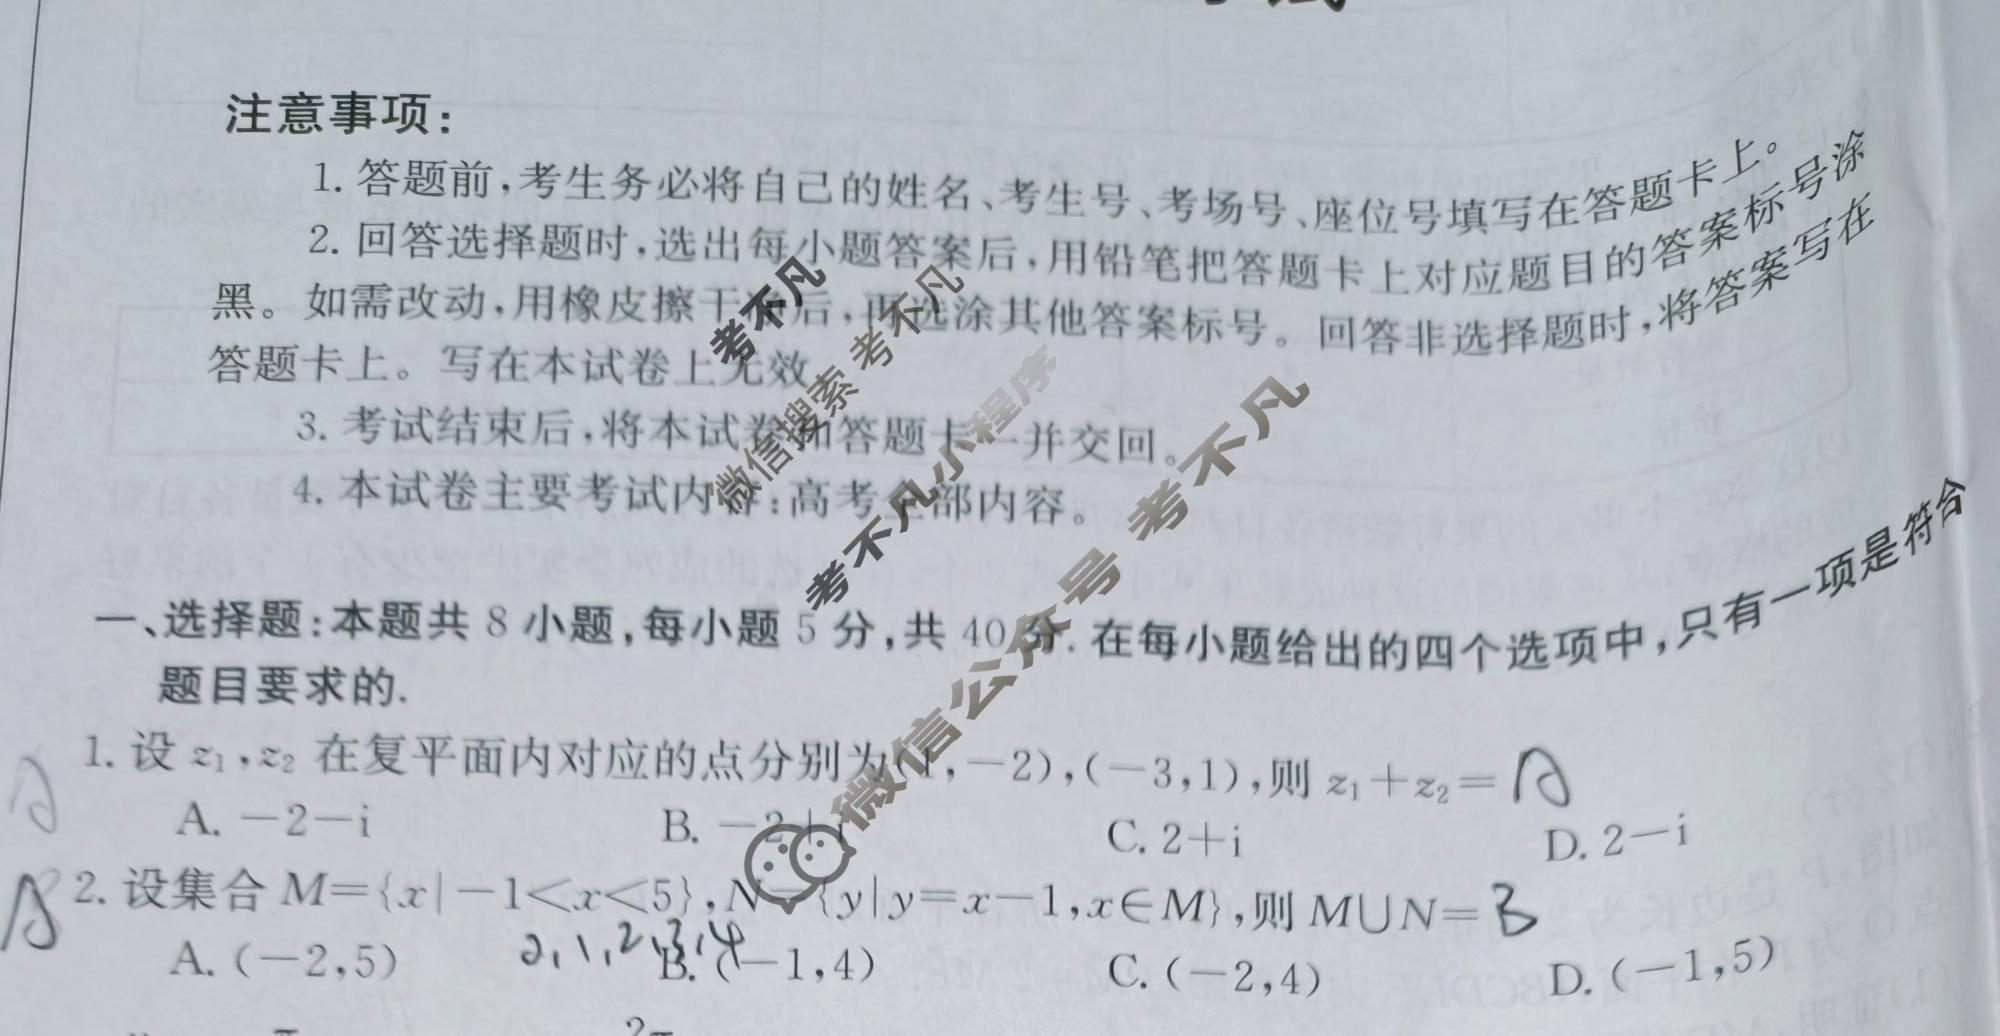 注意事项:
1. 答题前,考生务必将自己的姓名、考生号、考场号、座位号填写在答题卡上。
2. 回答选择题时,选出每小题答案后,用铅笔把答题卡上对应题目的答案标号涂
黑。如需改动,用橡皮擦干净后,再选涂其他答案标号。回答非选择题时,将答案写在
答题卡上。写在本试卷上无效
3. 考试结束后,将本试卷和答题卡一并交回。
4. 本试卷主要考试内容:高考全部内容。
考不凡
微信搜索 考不凡
考不凡小程序
微信公众号 考不凡
一、选择题:本题共 8 小题,每小题 5 分,共 40 分. 在每小题给出的四个选项中,只有一项是符合
题目要求的.
1. 设 z₁,z₂ 在复平面内对应的点分别为(1,-2),(-3,1),则 z₁+z₂= A
A
A. -2-i B. -2+i C. 2+i D. 2-i
2. 设集合 M={x|-1<x<5},N={y|y=x-1,x∈M},则 M∪N= B
A
A. (-2,5) B. (-1,4) C. (-2,4) D. (-1,5)